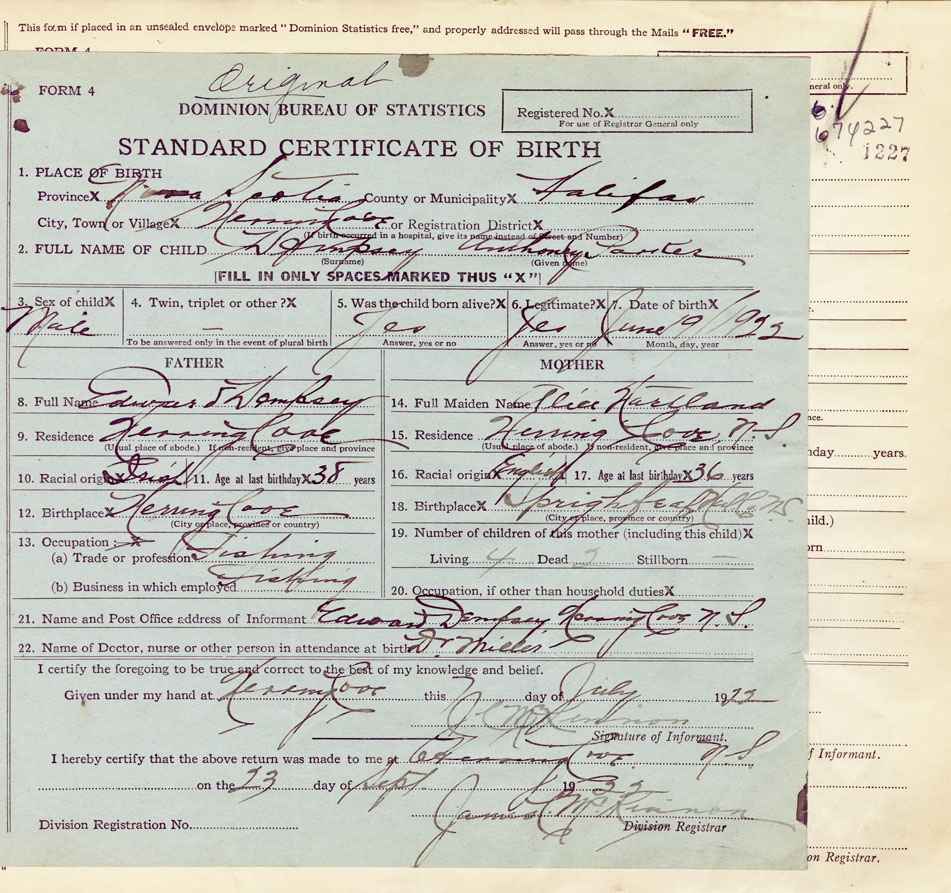 This form if placed in an unsealed envelope marked "Dominion Statistics free," and properly addressed will pass through the Mails "FREE."
FORM 4
Original
FORM 4
DOMINION BUREAU OF STATISTICS
Registered No. X
For use of Registrar General only
neral only.
674227
1227
STANDARD CERTIFICATE OF BIRTH
1. PLACE OF BIRTH
Province X Nova Scotia County or Municipality X Halifax
City, Town or Village X Herring Cove or Registration District X
(If birth occurred in a hospital, give its name instead of Street and Number)
2. FULL NAME OF CHILD Dempsey Anthony
(Surname) (Given name)
[FILL IN ONLY SPACES MARKED THUS "X"]
3. Sex of child X Male
4. Twin, triplet or other ? X —
To be answered only in the event of plural birth
5. Was the child born alive? X Yes
Answer, yes or no
6. Legitimate? X Yes
Answer, yes or no
7. Date of birth X June 9/1922
Month, day, year
FATHER
8. Full Name Edward Dempsey
9. Residence Herring Cove
(Usual place of abode.) If non-resident, give place and province
10. Racial origin X Irish 11. Age at last birthday X 38 years
12. Birthplace X Herring Cove
(City or place, province or country)
13. Occupation :— X
(a) Trade or profession Fishing
(b) Business in which employed Fishing
MOTHER
14. Full Maiden Name Hartland
15. Residence Herring Cove, N.S.
(Usual place of abode.) If non-resident, give place and province
16. Racial origin X English 17. Age at last birthday X 36 years
18. Birthplace X N.S.
(City or place, province or country)
19. Number of children of this mother (including this child) X
Living 4 Dead Stillborn —
20. Occupation, if other than household duties X
21. Name and Post Office address of Informant Edward Dempsey Herring Cove N.S.
22. Name of Doctor, nurse or other person in attendance at birth Dr Miller
I certify the foregoing to be true and correct to the best of my knowledge and belief.
Given under my hand at Herring Cove this day of July 1922
McKinnon
Signature of Informant.
I hereby certify that the above return was made to me at Herring Cove N.S.
on the 23 day of Sept 19
James McKinnon
Division Registration No. Division Registrar
nce.
hday years.
hild.)
orn
f Informant.
on Registrar.